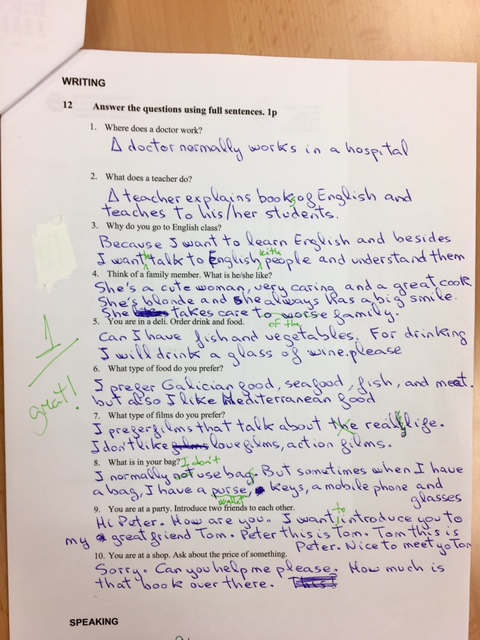 WRITING
12 Answer the questions using full sentences. 1p
1. Where does a doctor work?
A doctor normally works in a hospital
2. What does a teacher do?
A teacher explains books of English and
teaches to his/her students.
3. Why do you go to English class?
Because I want to learn English and besides
to with
I want talk to English people and understand them
4. Think of a family member. What is he/she like?
She's a cute woman, very caring and a great cook.
She's blonde and she always has a big smile.
She takes care to worse family.
of the
5. You are in a deli. Order drink and food.
Can I have fish and vegetables. For drinking
I will drink a glass of wine please
1
great!
6. What type of food do you prefer?
I prefer Galician food, seafood, fish, and meat.
but also I like Mediterranean food
7. What type of films do you prefer?
I prefer films that talk about the really life.
I don't like films love films, action films.
8. What is in your bag?
I don't
I normally not use bag. But sometimes when I have
a bag, I have a purse, keys, a mobile phone and
wallet
glasses
9. You are at a party. Introduce two friends to each other.
to
Hi Peter. How are you. I want introduce you to
my great friend Tom. Peter this is Tom. Tom this is
Peter. Nice to meet yo Tom
10. You are at a shop. Ask about the price of something.
Sorry. Can you help me please. How much is
that book over there.
SPEAKING